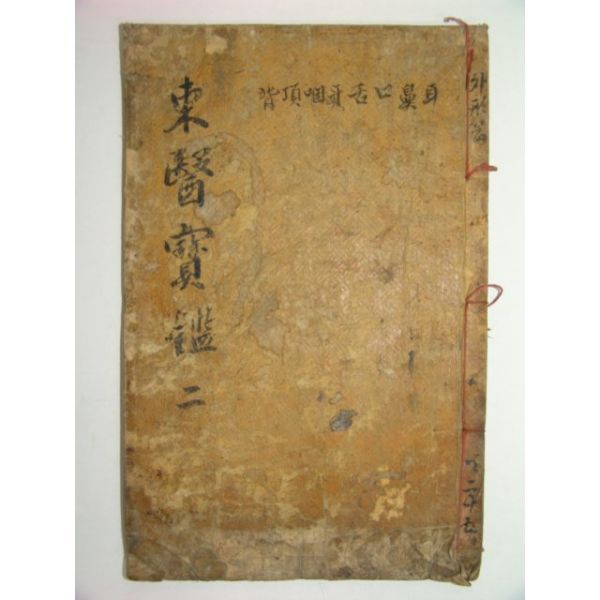 東醫寶鑑 二
耳鼻口舌牙咽頂背
外形篇
共二十五